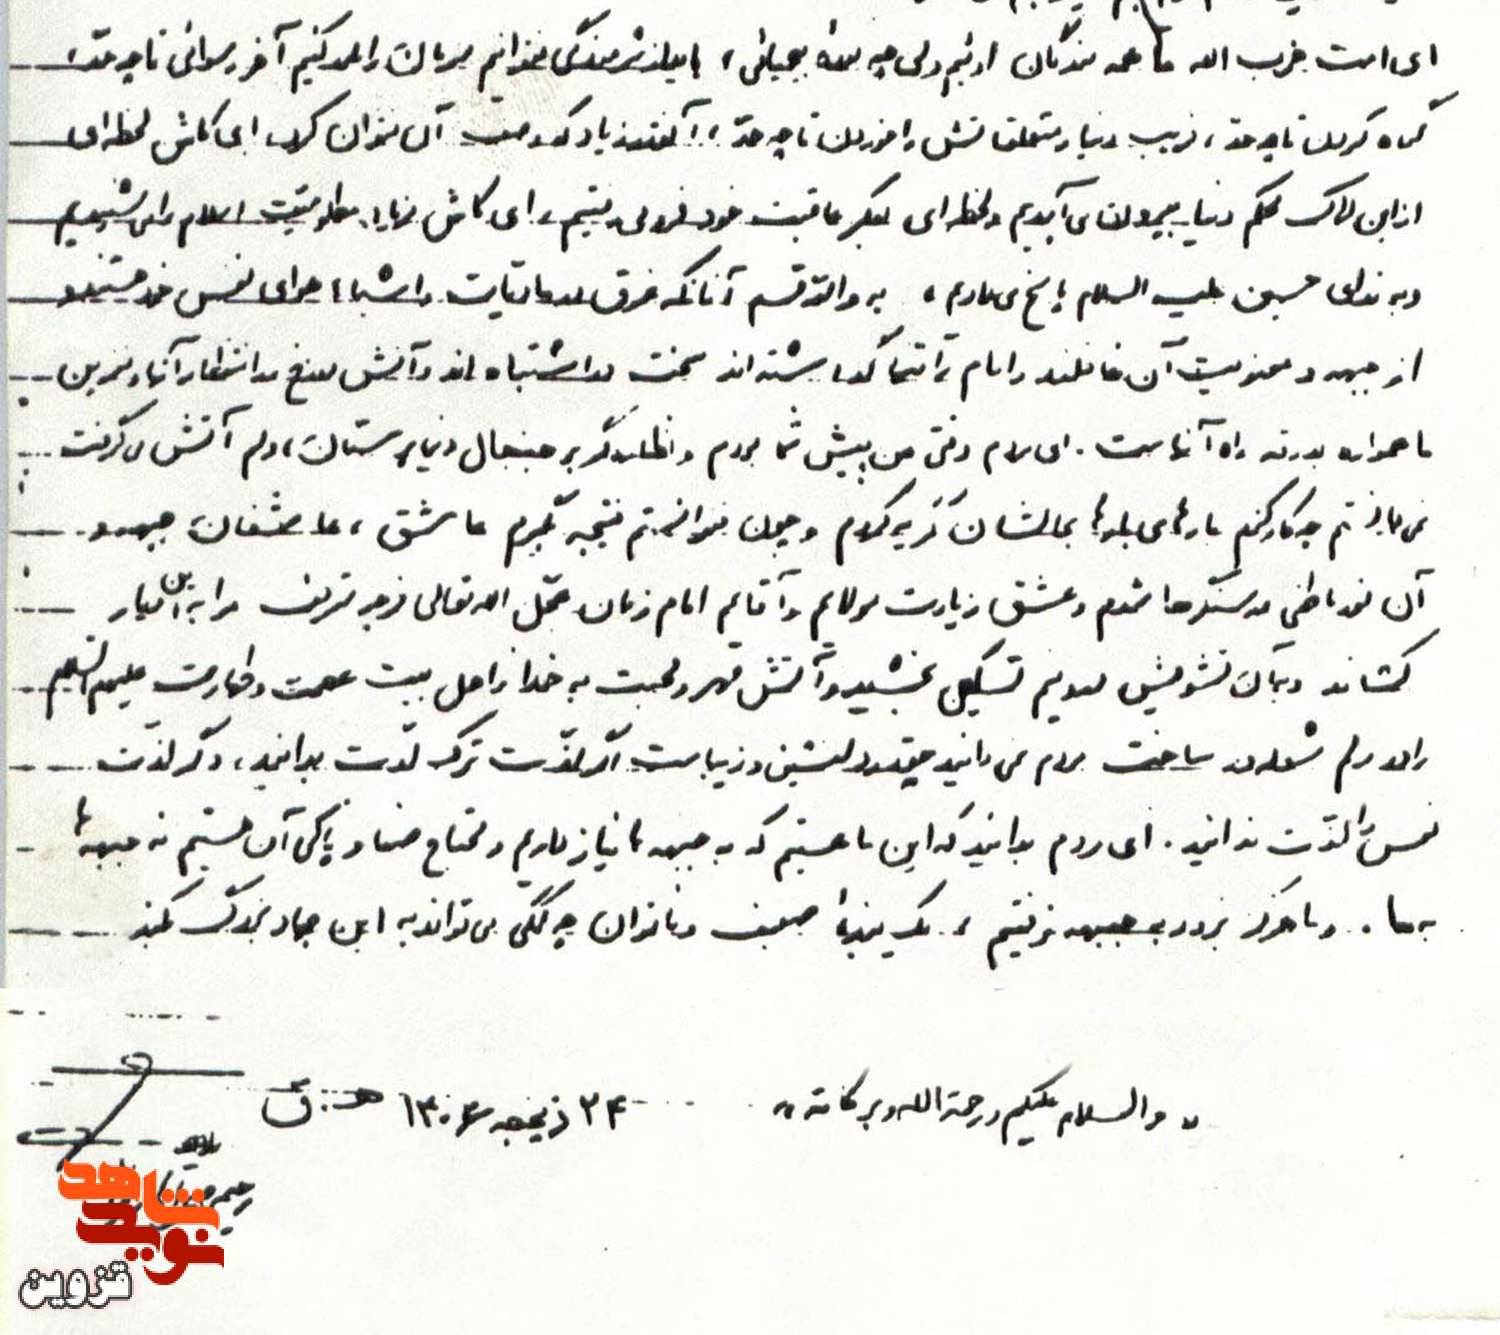 ای امت حزب الله ما همه بندگان اوئیم ولی چه بندهٔ بی‌حیائی، باید از شرمندگی نتوانیم سرمان را بلند کنیم آخر رسوائی تا چه حدّ،
گناه کردن تا چه حدّ، فریب دنیا و متعلقاتش را خوردن تا چه حدّ، آنقدر زیاد که وصف آن نتوان کرد. ای کاش لحظه‌ای
از این لاک محکم دنیا بیرون می‌آمدیم و لحظه‌ای بفکر عاقبت خود فرو می‌رفتیم، ای کاش نهایت مظلومیت اسلام را می‌شنیدیم
و به ندای حسین علیه السلام پاسخ می‌دادیم، به والله قسم آنانکه غرق در مادیات و اشباع هوای نفس خود هستند و
از جبهه و معنویت آن غافلند و امام را تنها گذاشته‌اند سخت در اشتباه‌اند و آتش دوزخ در انتظار آنها و نفرین
ما همواره بدرقه راه آنهاست. ای مردم وقتی من پیش شما بودم و نظاره‌گر بر جنجال دنیاپرستان، دلم آتش می‌گرفت
نمی‌دانستم چه کار کنم بارهای بارها بحالشان گریه کردم و چون نتوانستم نتیجه بگیرم عاشق، عاشقان جبهه و
آن نور باطنی در سنگرها شدم و عشق زیارت مولایم و آقایم امام زمان عجّل الله تعالی فرجه شریف مرا به این دیار
کشاند و بآن تشویش درونیم تسکین بخشید و آتش مهر و محبت به خدا و اهل بیت عصمت و طهارت علیهم السلام
را در دلم شعله‌ور ساخت مردم می‌دانید چقدر دلنشین و زیباست اگر لذّت ترک لذّت بدانید، دگر لذّت
نفس را لذّت ندانید. ای مردم بدانید که این ما هستیم که به جبهه‌ها نیاز داریم و محتاج صفا و پاکی آن هستیم نه جبهه‌ها
به ما. و ما هرگز بزور به جبهه نرفتیم، یک بندهٔ ضعیف و ناتوان چه کمکی می‌تواند به این جهاد بزرگ بکند
« والسلام علیکم و رحمة الله و برکاته » ۲۴ ذیحجه ۱۴۰۶ هـ.ق
شاهد
نوید
قزوین